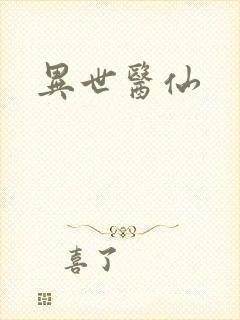 異世醫仙
喜了